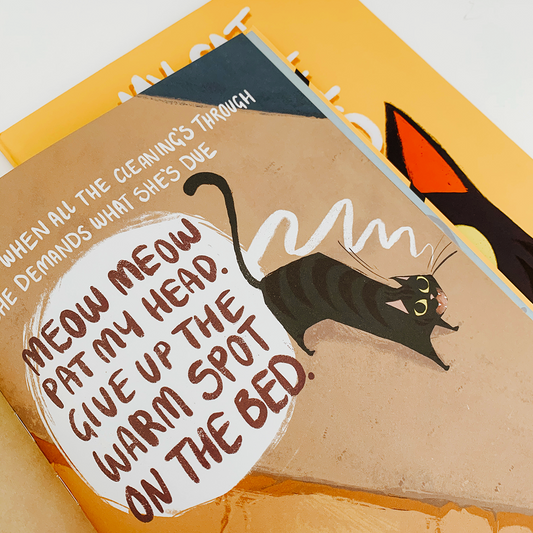 MY CAT
WHEN ALL THE CLEANING'S THROUGH
HE DEMANDS WHAT SHE'S DUE
MEOW MEOW
PAT MY HEAD.
GIVE UP THE
WARM SPOT
ON THE BED.